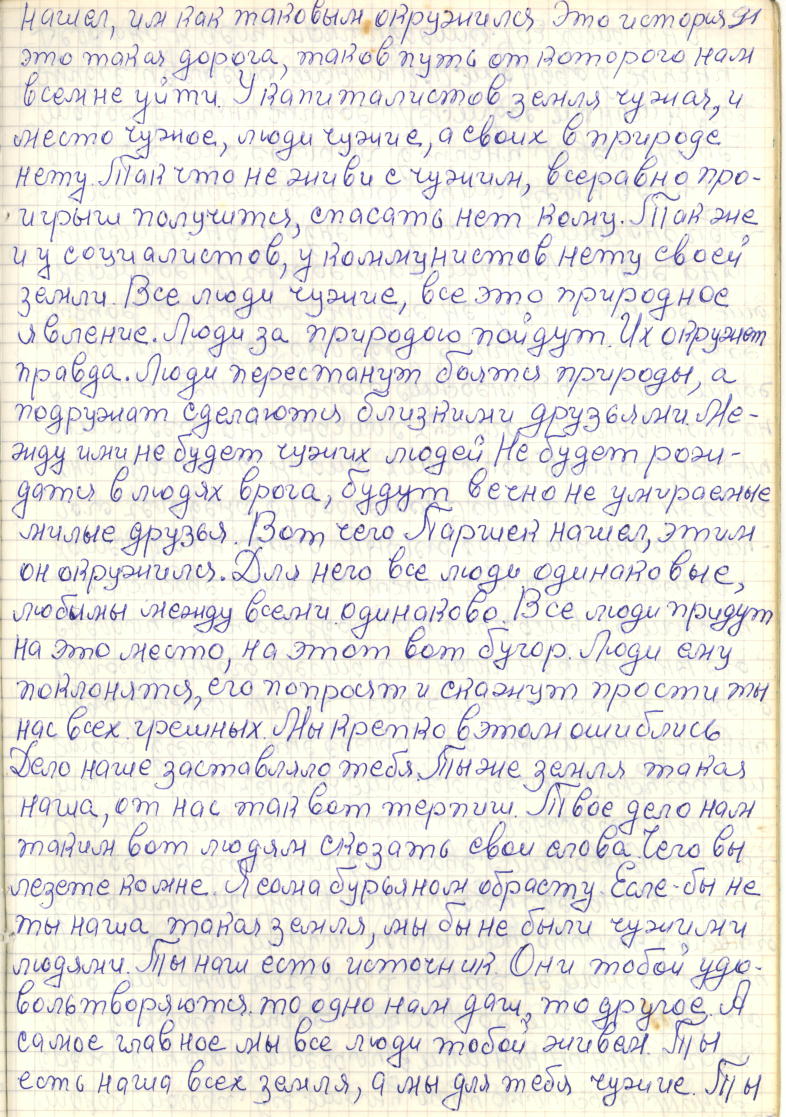 нашел, им как таковым окружился Это история 91
это такая дорога, таков путь от которого нам
всем не уйти. У капиталистов земля чужая, и
место чужое, люди чужие, а своих в природе
нету. Так что не живи с чужим, всеравно про-
игрыш получится, спасать нет кому. Так же
и у социалистов, у коммунистов нету своей
земли. Все люди чужие, все это природное
явление. Люди за природою пойдут. Их окружат
правда. Люди перестанут боятся природы, а
подружат сделаются близкими друзьями. Ме-
жду ими не будет чужих людей Не будет рожи-
датся в людях врага, будут вечно не умираемые
милые друзья. Вот чего Паршек нашел, этим
он окружился. Для него все люди одинаковые,
любимы между всеми одинаково. Все люди придут
на это место, на этот вот бугор. Люди ему
поклонятся, его попросят и скажут прости ты
нас всех грешных. Мы крепко в этом ошиблись
Дело наше заставляло тебя. Ты же земля такая
наша, от нас так вот терпиш. Твое дело нам
таким вот людям сказать свои слова. Чего вы
лезете комне. Я сама бурьяном обрасту. Если-бы не
ты наша такая земля, мы бы не были чужими
людями. Ты наш есть источник. Они тобой удо-
вольтворяются. то одно нам даш, то другое. А
самое главное мы все люди тобой живем. Ты
есть наша всех земля, а мы для тебя чужие. Ты